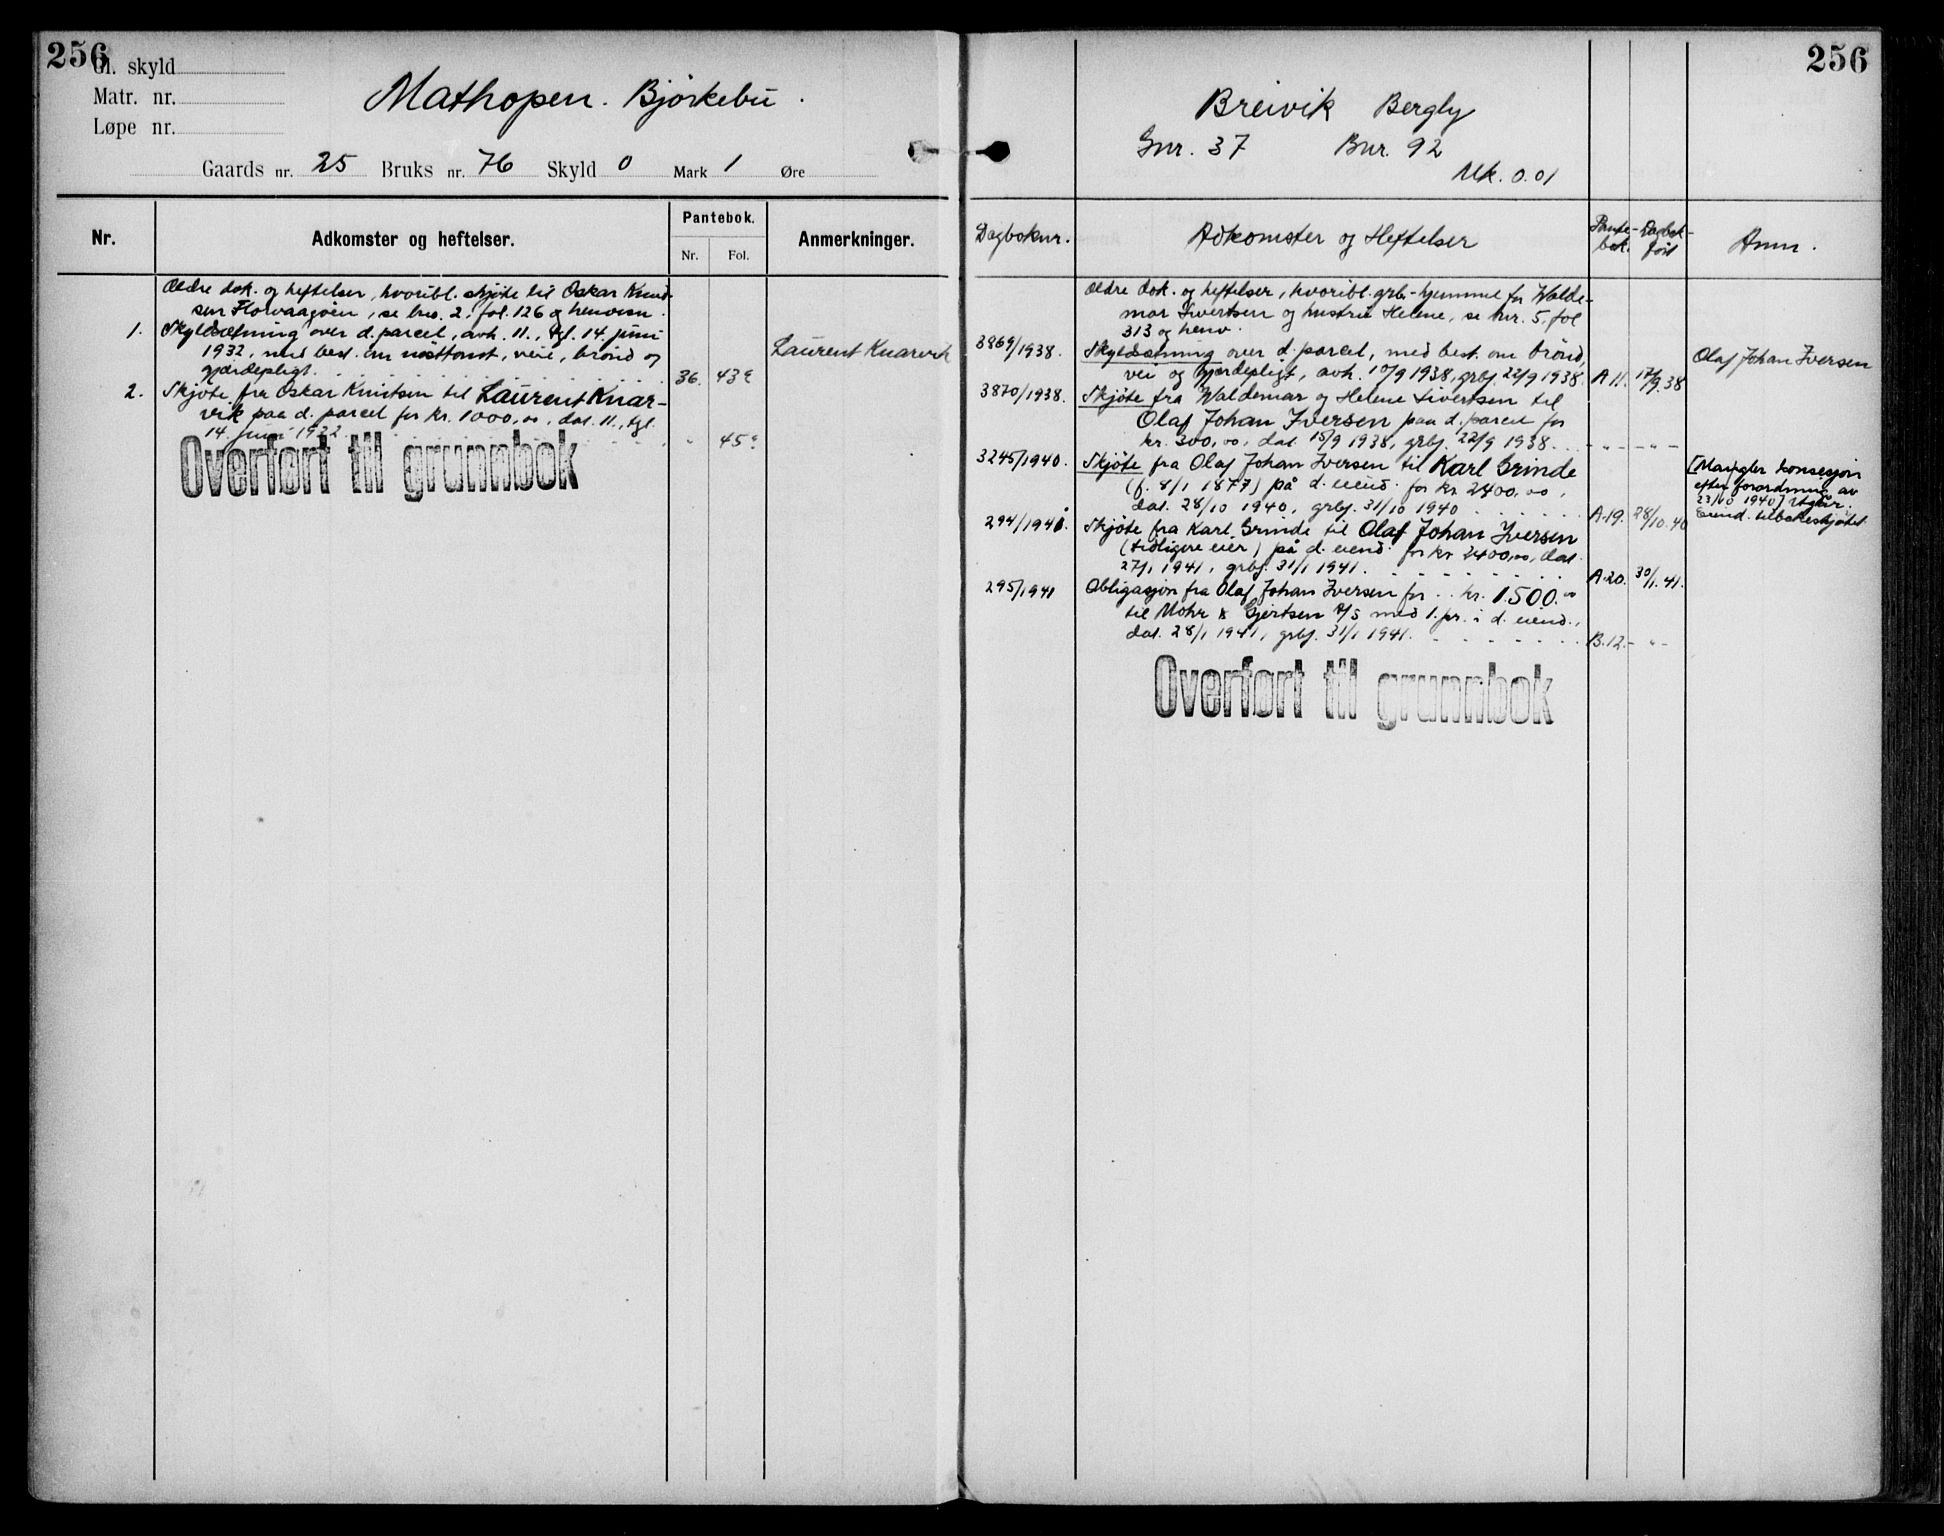 256
Gl. skyld
Matr. nr.
Løpe nr.
Mathopen. Bjørkebu.
Gaards nr. 25 Bruks nr. 76 Skyld 0 Mark 1 Øre
Nr.
Adkomster og heftelser.
Pantebok.
Nr. Fol.
Anmerkninger.
Ældre dok. og heftelser, hvoribl. skjøte til Oskar Knud-
sen Florvaagøen, se bnr. 2, fol. 126 og henvisn.
1. Skyldsætning over d. parcel, avh. 11., tgl. 14. juni
1932, med best. om nosttomt, veie, brønd og
gjærdepligt. 36. 43ᵃ
Laurent Knarvik
2. Skjøte fra Oskar Knutsen til Laurent Knar-
vik paa d. parcel for kr. 1000,00, dat. 11., tgl.
14. juni 1932. " 45ᵃ
Overført til grunnbok
256
Breivik Bergly
Gnr. 37 Bnr. 92
Mk. 0.01
Dagboknr.
Adkomster og Heftelser
Pante-
bok.
Dagbok-
ført
Anm.
Ældre dok. og heftelser, hvoribl. grb.-hjemmel for Walde-
mar Sivertsen og hustru Helene, se bnr. 5, fol
313 og henv.
3869/1938. Skyldsætning over d. parcel, med best. om brønd,
vei og gjærdepligt, avh. 10/9 1938, grbf. 22/9 1938. A 11. 17/9.38
Olaf Johan Iversen
3870/1938. Skjøte fra Waldemar og Helene Sivertsen til
Olaf Johan Iversen paa d. parcel for
kr. 300,00, dat 15/9 1938, grbf. 22/9 1938. - " - - " -
3245/1940. Skjøte fra Olaf Johan Iversen til Karl Grinde
(f. 8/1 1877) på d. eiend. for kr. 2400,00,
dat. 28/10 1940, grbf. 31/10 1940 A.19. 28/10.40
[Mangler konsesjon
efter forordning av
23/10 1940] Utgår.
Eiend. tilbakeskjøtet
294/1941. Skjøte fra Karl Grinde til Olaf Johan Iversen
(tidligere eier) på d. eiend. for kr 2400,00, dat.
27/1 1941, grbf. 31/1 1941. A.20. 30/1.41.
295/1941 Obligasjon fra Olaf Johan Iversen for kr. 1.500.00
til Mohr & Gjertsen A/S med 1. pr. i d. eiend.,
dat. 28/1 1941, grbf. 31/1 1941. B.12. - " -
Overført til grunnbok